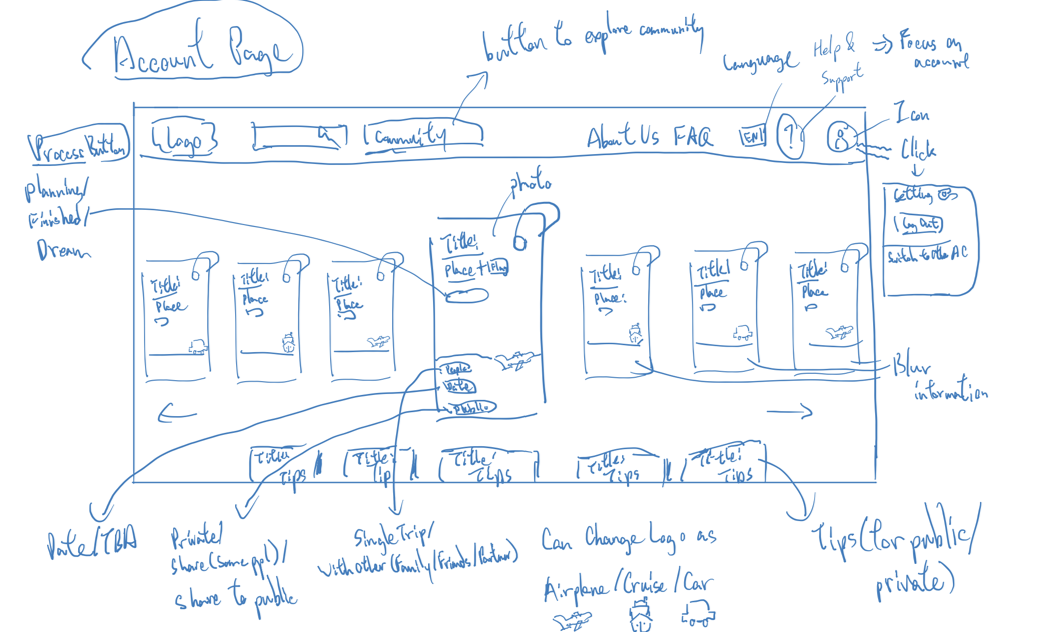 Account Page
button to explore community
Language
Help &
Support
=> Focus on
account
Process Button
Planning/
Finished/
Dream
Logo
Community
About Us FAQ
EN
?
Icon
Click
Setting
Log Out
Switch to other AC
photo
Title:
Place
Title:
Place
Title:
Place
Title:
Place + Flag
People
Date
Public
Title:
Place:
Title:
Place
Title:
Place
Blur
information
Title:
Tips
Title:
Tip
Title:
Tips
Title:
Tips
Title:
Tips
Date/TBA
Private/
share (some ppl)/
share to public
Single Trip/
with other (Family/Friends/Partner)
Can Change Logo as
Airplane/Cruise/Car
Tips (for public/
private)